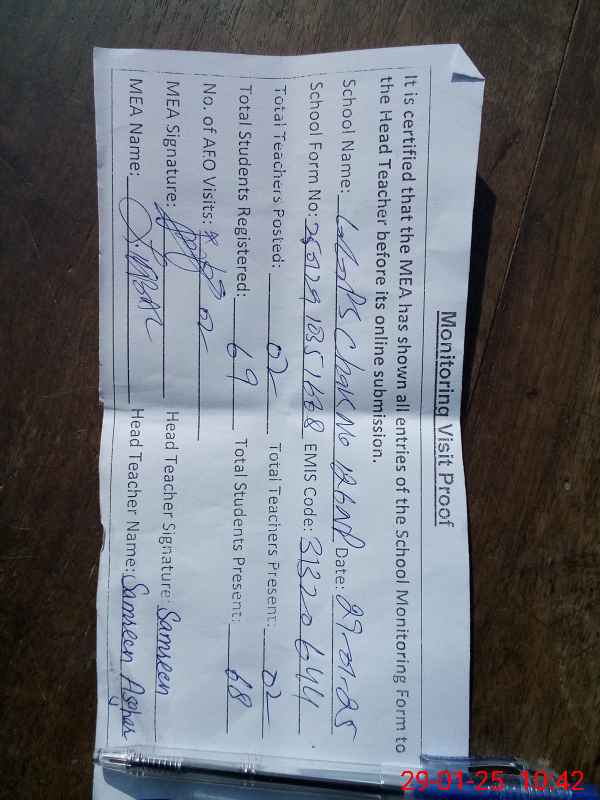 Monitoring Visit Proof
It is certified that the MEA has shown all entries of the School Monitoring Form to
the Head Teacher before its online submission.
School Name: GGPS Chak No 126NP Date: 29-01-25
School Form No: 250129 1051608 EMIS Code: 31320644
Total Teachers Posted: 02 Total Teachers Present: 02
Total Students Registered: 69 Total Students Present: 68
No. of AEO Visits: 02
MEA Signature: Head Teacher Signature: Samreen
MEA Name: J. IQBAL Head Teacher Name: Samreen Asghar
29-01-25 10:42